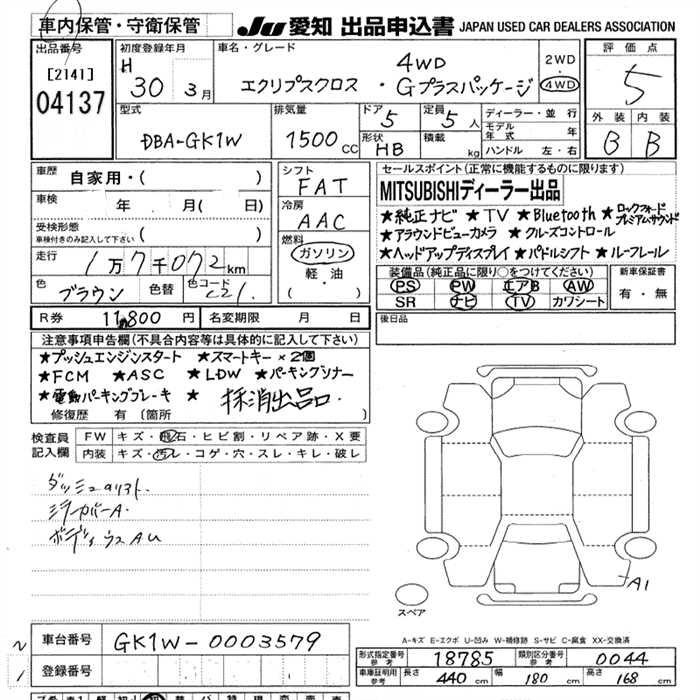 車内保管・守衛保管 JU 愛知 出品申込書 JAPAN USED CAR DEALERS ASSOCIATION
出品番号 [2141] 04137
初度登録年月 H 30 3月
車名・グレード 4WD エクリプスクロス ・Gプラスパッケージ
2WD 4WD
評価点 5
外装 内装
B B
型式 DBA-GK1W
排気量 1500 CC
ドア 5 形状 HB
定員 5人 積載 kg
ディーラー・並行
モデル年式 年
ハンドル 左・右
車歴 自家用・( )
車検 年 月( 日)
受検形態
車検付きのみ記入して下さい ( )
走行 1万7千072km
色 ブラウン 色替 色コード C21
シフト FAT
冷房 AAC
燃料 ガソリン
軽油
( ・ )
セールスポイント(正常に機能するものに限ります)
MITSUBISHIディーラー出品
★純正ナビ ★TV ★Bluetooth ★ロックフォードプレミアムサウンド
★アラウンドビューカメラ ★クルーズコントロール
★ヘッドアップディスプレイ ★パドルシフト ★ルーフレール
装備品(純正品に限り○をつけてください)
PS PW エアB AW
SR ナビ TV カワシート
新車保証書
有・無
R券 11,800 円 名変期限 月 日
後日品
注意事項申告欄(不具合内容等は具体的に記入して下さい)
★プッシュエンジンスタート ★スマートキー×2個
★FCM ★ASC ★LDW ★パーキングソナー
★電動パーキングブレーキ ★ 抹消出品。
修復歴 有 (箇所 )
検査員記入欄
FW キズ・飛石・ヒビ割・リペア跡・X要
内装 キズ・汚レ・コゲ・穴・スレ・キレ・破レ
ミラーカバーA.
スペア
A1
A-キズ E-エクボ U-凹み W-補修跡 S-サビ C-腐食 XX-交換済
車台番号 GK1W-0003579
登録番号
形式指定番号 参考 18785 類別区分番号 参考 0044
車庫証明用 参考 長さ 440 cm 幅 180 cm 高さ 168 cm